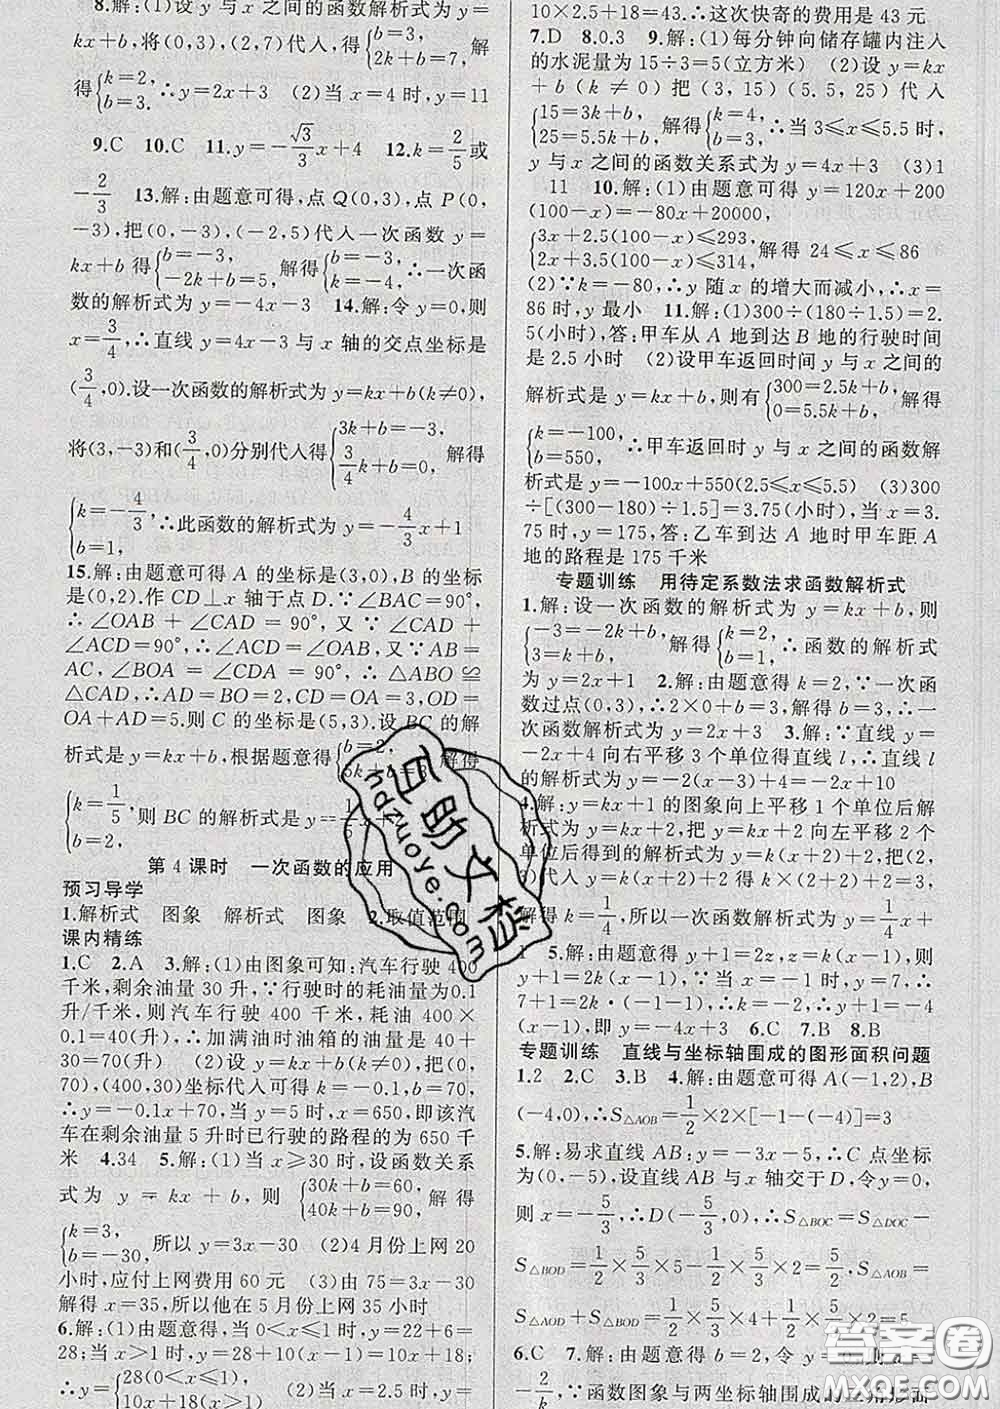 8.解:(1)设 y 与 x 之间的函数解析式为 y=
kx+b,将(0,3),(2,7)代人,得{b=3, 2k+b=7,解
得{k=2, b=3. ∴y=2x+3 (2)当 x=4 时,y=11
9.C 10.C 11.y=-√3/3x+4 12.k=2/5或
-2/3 13.解:由题意可得,点 Q(0,3),点 P(0,
-3),把(0,-3),(-2,5)代入一次函数 y=
kx+b 得{b=-3, -2k+b=5,解得{b=-3, k=-4. ∴一次函
数的解析式为 y=-4x-3 14.解:令 y=0,则
x=3/4,∴直线 y=4x-3 与 x 轴的交点坐标是
(3/4,0).设一次函数的解析式为 y=kx+b(k≠0),
将(3,-3)和(3/4,0)分别代人得{3k+b=-3, 3/4k+b=0,解得
{k=-4/3, b=1, ∴此函数的解析式为 y=-4/3x+1
15.解:由题意可得 A 的坐标是(3,0),B 的坐标
是(0,2).作 CD⊥x 轴于点 D.∵∠BAC=90°,
∴∠OAB+∠CAD=90°,又∵∠CAD+
∠ACD=90°,∴∠ACD=∠OAB,又∵AB=
AC,∠BOA=∠CDA=90°,∴△ABO≌
△CAD,∴AD=BO=2,CD=OA=3,OD=
OA+AD=5.则 C 的坐标是(5,3).设 BC 的解
析式是 y=kx+b,根据题意得{b=2, 5k+b=3,解得
{k=1/5, b=2, 则 BC 的解析式是 y=1/5x+2
第 4 课时 一次函数的应用
预习导学
1.解析式 图象 解析式 图象 2.取值范围
课内精练
1.C 2.A 3.解:(1)由图象可知:汽车行驶 400
千米,剩余油量 30 升,∵行驶时的耗油量为0.1
升/千米,则汽车行驶 400 千米,耗油 400×
0.1=40(升) ∴加满油时油箱的油量是 40+
30=70(升) (2)设 y=kx+b(k≠0),把(0,
70),(400,30)坐标代人可得:k=-0.1,b=70,
∴y=-0.1x+70,当 y=5 时,x=650,即该汽
车在剩余油量 5 升时已行驶的路程的为 650 千
米 4.34 5.解:(1)当 x≥30 时,设函数关系
式为 y=kx+b,则{30k+b=60, 40k+b=90,解得
{k=3, b=-30, 所以 y=3x-30 (2)4 月份上网 20
小时,应付上网费用 60 元 (3)由 75=3x-30
解得 x=35,所以他在 5 月份上网 35 小时
6.解:(1)由题意得,当 0<x≤1 时,y=22+6=
28;当 x>1 时,y=28+10(x-1)=10x+18
∴y={28(0<x≤1) 10x+18(x>1) (2)当 x=2.5 时,y=
10×2.5+18=43.∴这次快寄的费用是 43 元
7.D 8.0.3 9.解:(1)每分钟向储存罐内注入
的水泥量为 15÷3=5(立方米) (2)设 y=kx
+b(k≠0)把(3,15)(5.5,25)代入
{15=3k+b, 25=5.5k+b,解得{k=4, b=3, ∴当 3≤x≤5.5 时,
y 与 x 之间的函数关系式为 y=4x+3 (3)1
11 10.解:(1)由题意可得 y=120x+200
(100-x)=-80x+20000,
{3x+2.5(100-x)≤293, 2x+3(100-x)≤276,解得 24≤x≤86
(2)∵k=-80,∴y 随 x 的增大而减小,∴x=
86 时,y 最小 11.解:(1)300÷(180÷1.5)=2.
5(小时),答:甲车从 A 地到达 B 地的行驶时间
是 2.5 小时 (2)设甲车返回时间 y 与 x 之间的
解析式是 y=kx+b,则有{300=2.5k+b, 0=5.5k+b,解得
{k=-100, b=550, ∴甲车返回时 y 与 x 之间的函数解
析式是 y=-100x+550(2.5≤x≤5.5) (3)300
÷[(300-180)÷1.5]=3.75(小时),当 x=3.
75 时,y=175,答:乙车到达 A 地时甲车距 A
地的路程是 175 千米
专题训练 用待定系数法求函数解析式
1.解:设一次函数的解析式为 y=kx+b,则
{-3=-2k+b, 3=k+b,解得{k=2, b=1, ∴函数的解析式
为 y=2x+1 2.解:由题意得 k=2,∵一次函
数过点(0,3),∴2×0+b=3,解得 b=3,∴一
次函数解析式为 y=2x+3 3.解:∵直线 y=
-2x+4 向右平移 3 个单位得直线 l,∴直线 l
的解析式为 y=-2(x-3)+4=-2x+10
4.解:y=kx+b 的图象向上平移 1 个单位后解
析式为 y=kx+b+1,把 y=kx+b 向左平移 2
个单位后得到的解析式为 y=k(x+2)+b 把(2,
3)代人 y=k(x+2)+b 得{2k+b+1=3, k(2+2)+b=2,
解得 k=1/4,所以一次函数解析式为 y=1/4x+
1 5.解:由题意得 y+1=2z,z=kx,则
y+1=2kx,∵当 x=-1 时,y=7,∴
7+1=2k·(-1),∴k=-4,∴y+1=-4
(x-1),即 y=-4x+3 6.C 7.B 8.B
专题训练 直线与坐标轴围成的图形面积问题
1.2 2.C 3.B 4.解:由题意可得 A(-1,2),B
(-4,0),∴S△AOB=1/2×2×[-1-(-4)]=3
5.解:易求直线 AB:y=-3x-5,∴C 点坐标
为(0,-5),设直线 AB 与 x 轴交于 D,令 y=0,
则 x=-5/3,∴D(-5/3,0),∴S△BOC=S△DOC-
S△BOD=1/2×5/3×5-1/2×5/3×1=5/2×5/3,S△AOB=
S△AOD+S△BOD=1/2×5/3×4+1/2×5/3×1=2=5
6.C 7.解:由题意得 b=2,令 y=0,则 x=
-2/k,∵函数图象与两坐标轴围成的三角形面
互助文档
hdzuoye.com
答案圈
MXQE.COM